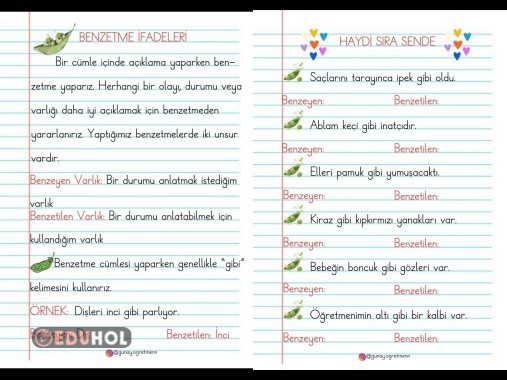 BENZETME İFADELERİ
Bir cümle içinde açıklama yaparken ben-
zetme yaparız. Herhangi bir olayı, durumu veya
varlığı daha iyi açıklamak için benzetmeden
yararlanırız. Yaptığımız benzetmelerde iki unsur
vardır.
Benzeyen Varlık: Bir durumu anlatmak istediğim
varlık
Benzetilen Varlık: Bir durumu anlatabilmek için
kullandığım varlık
Benzetme cümlesi yaparken genellikle "gibi"
kelimesini kullanırız.
ÖRNEK: Dişleri inci gibi parlıyor.
Benzetilen: İnci
©EDUHOL
@gunay.ogretmenn
HAYDİ SIRA SENDE
Saçlarını tarayınca ipek gibi oldu.
Benzeyen: Benzetilen:
Ablam keçi gibi inatçıdır.
Benzeyen: Benzetilen:
Elleri pamuk gibi yumuşacaktı.
Benzeyen: Benzetilen:
Kiraz gibi kıpkırmızı yanakları var.
Benzeyen: Benzetilen:
Bebeğin boncuk gibi gözleri var.
Benzeyen: Benzetilen:
Öğretmenimin altı gibi bir kalbi var.
Benzeyen: Benzetilen:
@gunay.ogretmenn